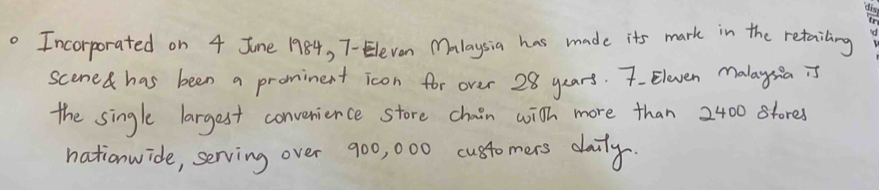 ° Incorporated on 4 June 1984, 7-Eleven Malaysia has made its mark in the retailing
scene & has been a prominent icon for over 28 years. 7-Eleven Malaysia is
the single largest convenience store chain with more than 2400 stores
nationwide, serving over 900,000 customers daily.